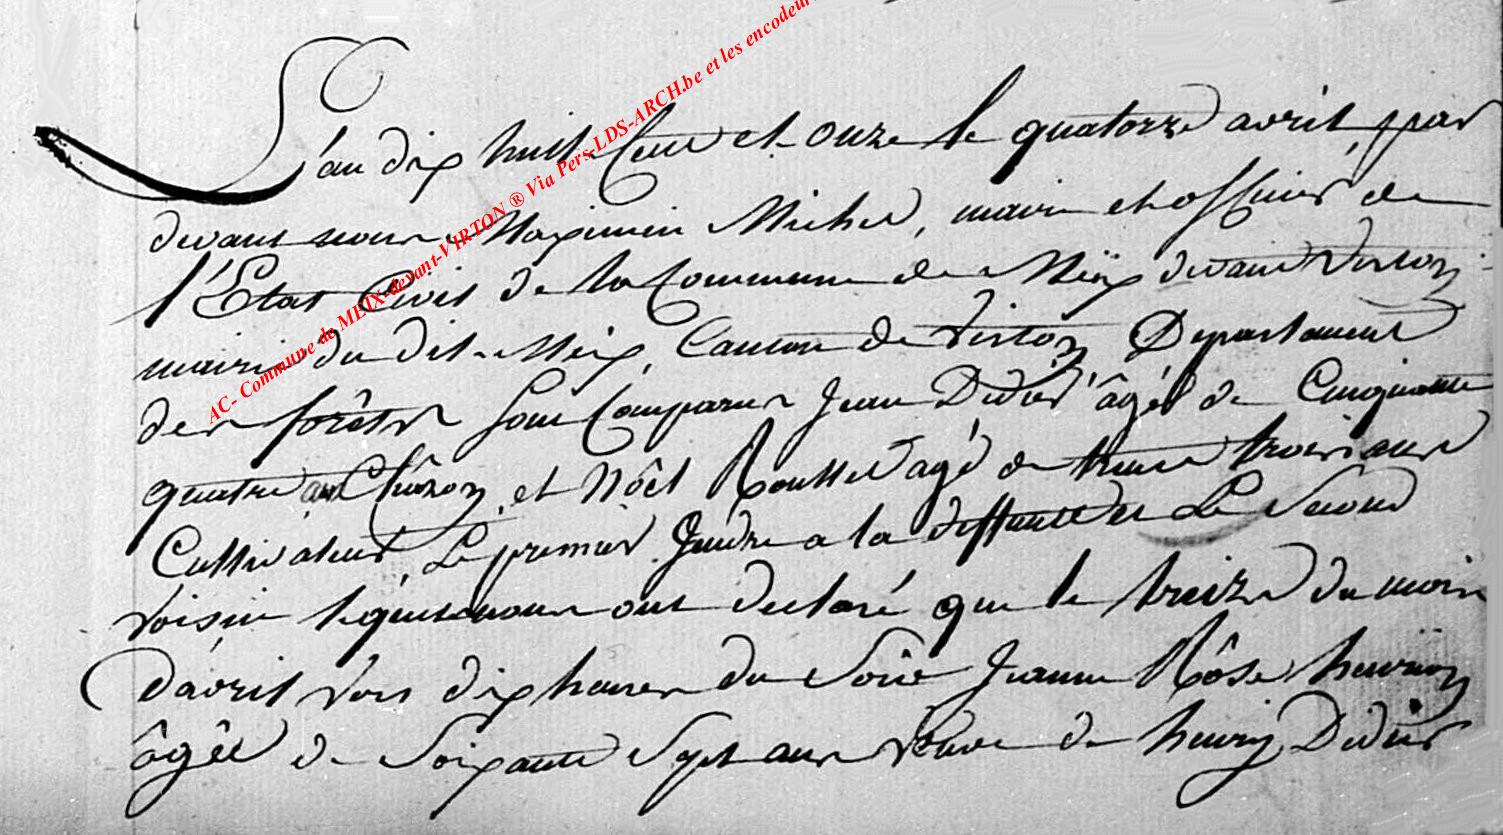 AC- Commune de MEIX-devant-VIRTON ® Via Pers-LDS-ARCH.be et les encodeur
L'an dix huit Cent et onze le quatorze avril, par
devant nous Maximin Michel, maire et officier de
l'Etat Civil de la Commune de Meix devant Virton
mairie du dit Meix, Canton de Virton Departement
des forêts sont Comparus Jean Didier âgé de Cinquante
quatre ans et Nôel Roussel agé de trente trois ans
Cultivateur, Le premier Gendre a la deffunte et Le Second
voisin lequels nous ont declaré que le treize du mois
d'avril vers dix heures du Soir Jeanne Rôse henrion
âgée de Soixante Sept ans veuve de henry Didier